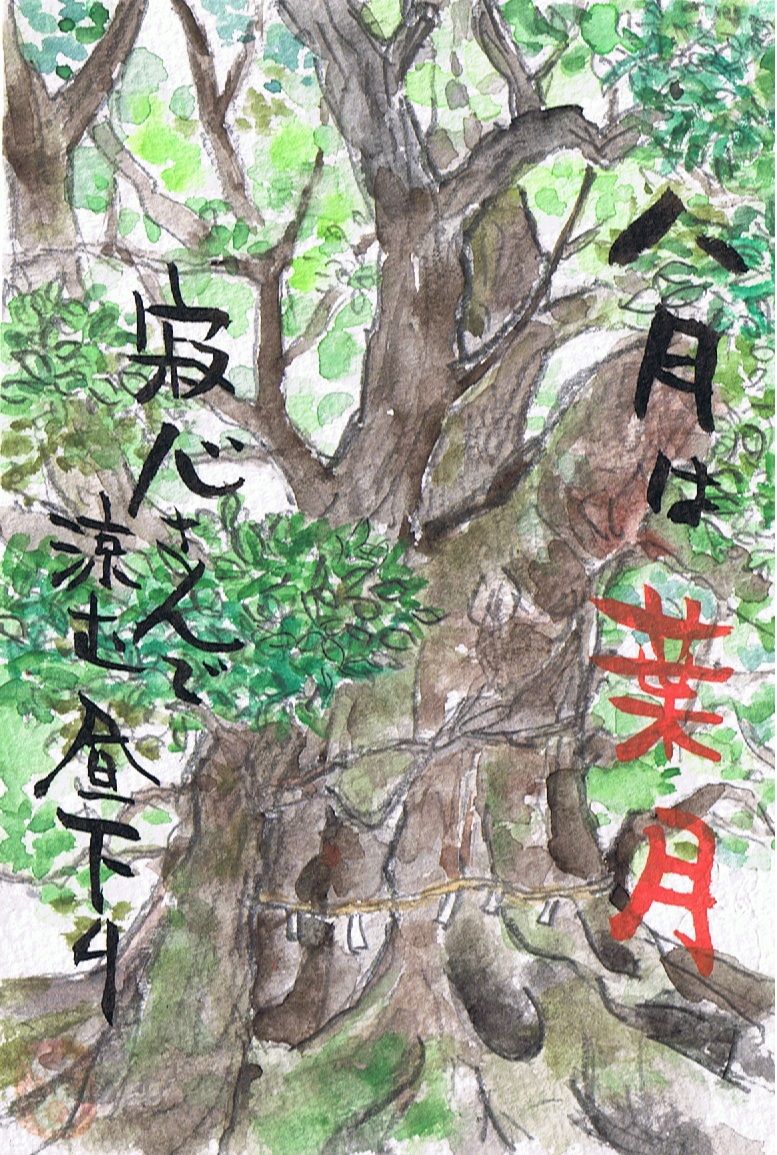 八月は葉月
寂心さんで
涼む昼下り